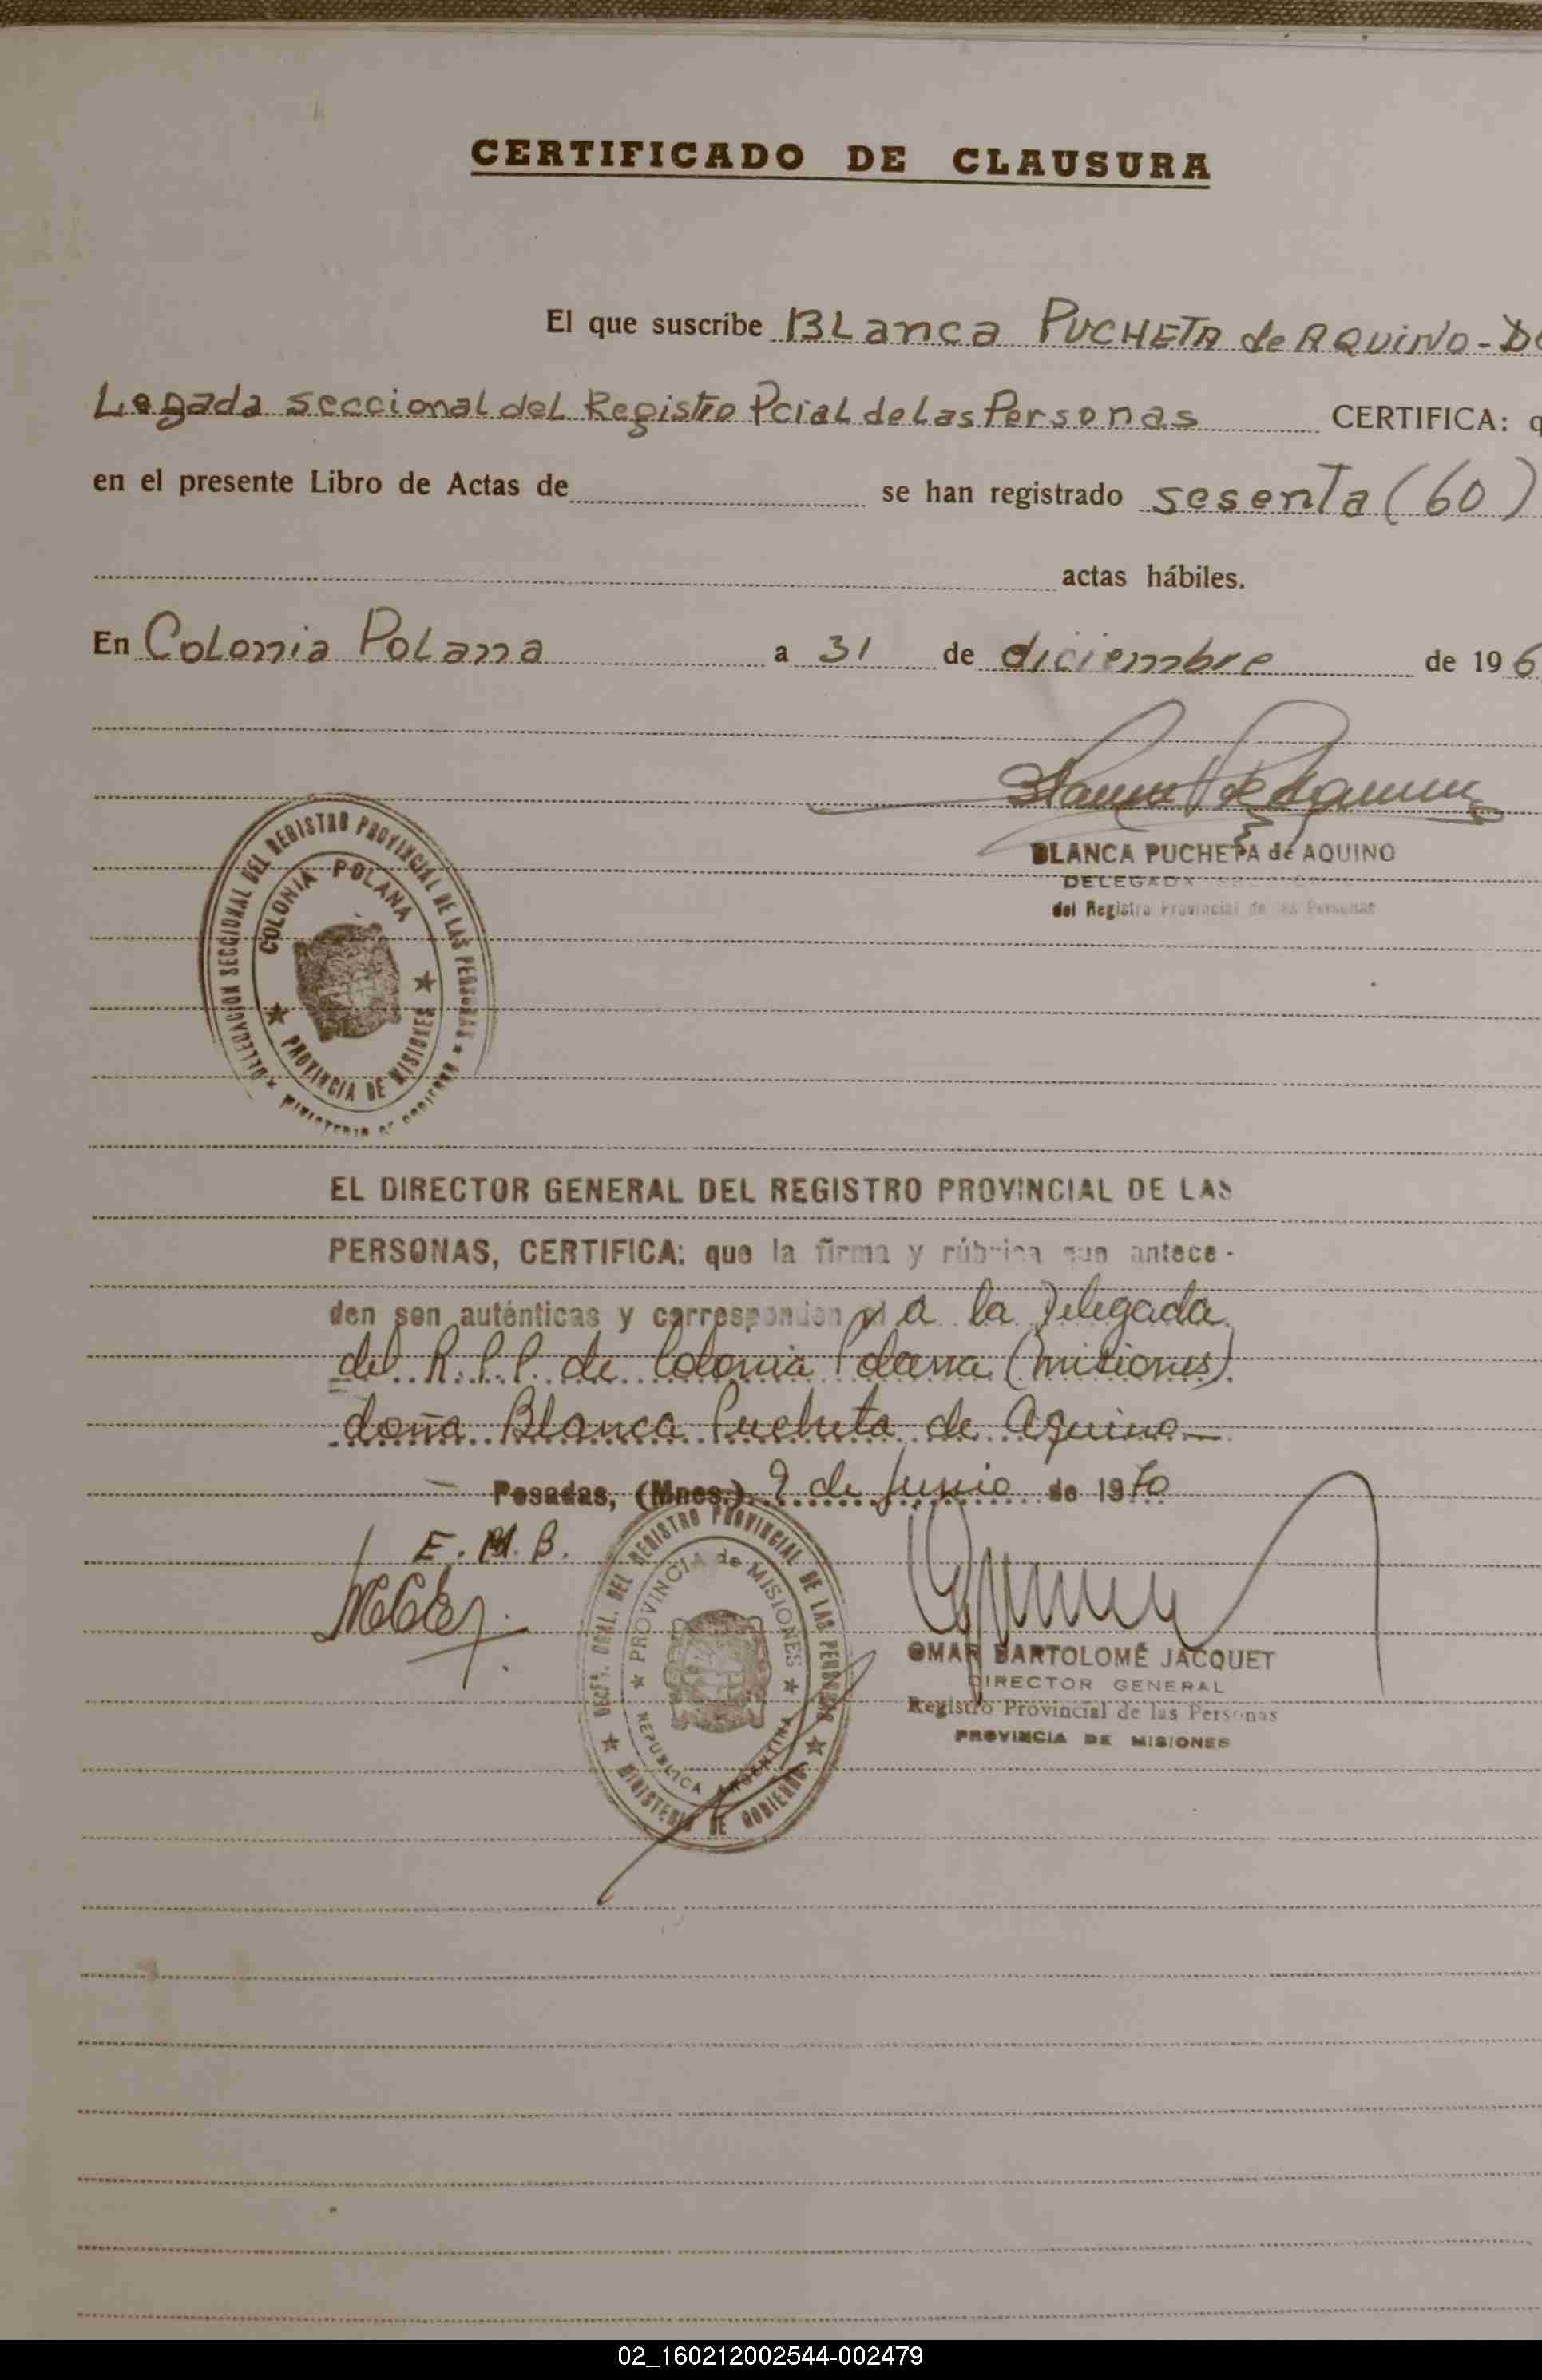 CERTIFICADO DE CLAUSURA
El que suscribe Blanca PUCHETA de AQUINO - De
Legada seccional del Registro Pcial de Las Personas CERTIFICA: q
en el presente Libro de Actas de se han registrado sesenta (60)
actas hábiles.
En Colonia Polana a 31 de diciembre de 196
BLANCA PUCHETA de AQUINO
DELEGADA SECCIONAL
del Registro Provincial de las Personas
DELEGACION SECCIONAL DEL REGISTRO PROVINCIAL DE LAS PERSONAS
MINISTERIO DE GOBIERNO
COLONIA POLANA
PROVINCIA DE MISIONES
EL DIRECTOR GENERAL DEL REGISTRO PROVINCIAL DE LAS
PERSONAS, CERTIFICA: que la firma y rúbrica que antece-
den son auténticas y corresponden a la Delegada
del R.P.P. de Colonia Polana (Misiones)
doña Blanca Pucheta de Aquino
Posadas, (Mnes.) 9 de Junio de 1970
E. M. B.
DECC. GRAL. DEL REGISTRO PROVINCIAL DE LAS PERSONAS
MINISTERIO DE GOBIERNO
PROVINCIA de MISIONES
REPUBLICA ARGENTINA
OMAR BARTOLOMÉ JACQUET
DIRECTOR GENERAL
Registro Provincial de las Personas
PROVINCIA DE MISIONES
02_160212002544-002479